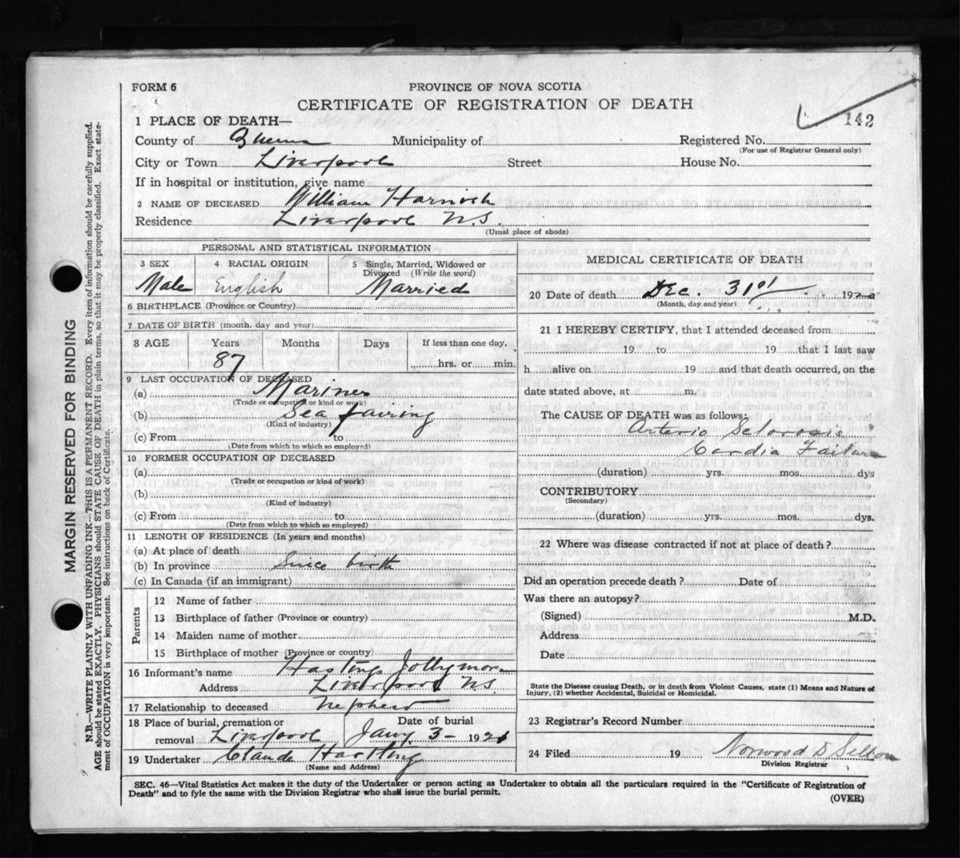 FORM 6
PROVINCE OF NOVA SCOTIA
CERTIFICATE OF REGISTRATION OF DEATH
142
1 PLACE OF DEATH—
County of Queens Municipality of Registered No.
(For use of Registrar General only)
City or Town Liverpool Street House No.
If in hospital or institution, give name
2 NAME OF DECEASED William Harnish
Residence Liverpool N.S.
(Usual place of abode)
PERSONAL AND STATISTICAL INFORMATION
3 SEX 4 RACIAL ORIGIN 5 Single, Married, Widowed or Divorced (Write the word)
Male English Married
6 BIRTHPLACE (Province or Country)
7 DATE OF BIRTH (month, day and year)
8 AGE Years Months Days If less than one day,
87 hrs. or min.
9 LAST OCCUPATION OF DECEASED
(a) Mariner
(Trade or occupation or kind of work)
(b) Sea fairing
(Kind of industry)
(c) From to
(Date from which to which so employed)
10 FORMER OCCUPATION OF DECEASED
(a)
(Trade or occupation or kind of work)
(b)
(Kind of industry)
(c) From to
(Date from which to which so employed)
11 LENGTH OF RESIDENCE (In years and months)
(a) At place of death
(b) In province Since birth
(c) In Canada (if an immigrant)
Parents
12 Name of father
13 Birthplace of father (Province or country)
14 Maiden name of mother
15 Birthplace of mother (Province or country)
16 Informant's name Hastings Jollymore
Address Liverpool N.S.
17 Relationship to deceased nephew
18 Place of burial, cremation or removal Date of burial
Liverpool Jany 3- 192
19 Undertaker Claude Hartling
(Name and Address)
MEDICAL CERTIFICATE OF DEATH
20 Date of death Dec. 31st 192
(Month, day and year)
21 I HEREBY CERTIFY, that I attended deceased from
19 to 19 that I last saw
h alive on 19 and that death occurred, on the
date stated above, at m.
The CAUSE OF DEATH was as follows:
Arterio Sclorosis
Cardia Failure
(duration) yrs. mos. dys
CONTRIBUTORY
(Secondary)
(duration) yrs. mos. dys.
22 Where was disease contracted if not at place of death?
Did an operation precede death? Date of
Was there an autopsy?
(Signed) M.D.
Address
Date
State the Disease causing Death, or in death from Violent Causes, state (1) Means and Nature of
Injury, (2) whether Accidental, Suicidal or Homicidal.
23 Registrar's Record Number
24 Filed 19 Norwood
Division Registrar
SEC. 46—Vital Statistics Act makes it the duty of the Undertaker or person acting as Undertaker to obtain all the particulars required in the "Certificate of Registration of
Death" and to fyle the same with the Division Registrar who shall issue the burial permit.
(OVER)
MARGIN RESERVED FOR BINDING
N.B.—WRITE PLAINLY WITH UNFADING INK—THIS IS A PERMANENT RECORD. Every item of information should be carefully supplied.
AGE should be stated EXACTLY. PHYSICIANS should STATE CAUSE OF DEATH in plain terms, so that it may be properly classified. Exact state-
ment of OCCUPATION is very important. See instructions on back of Certificate.